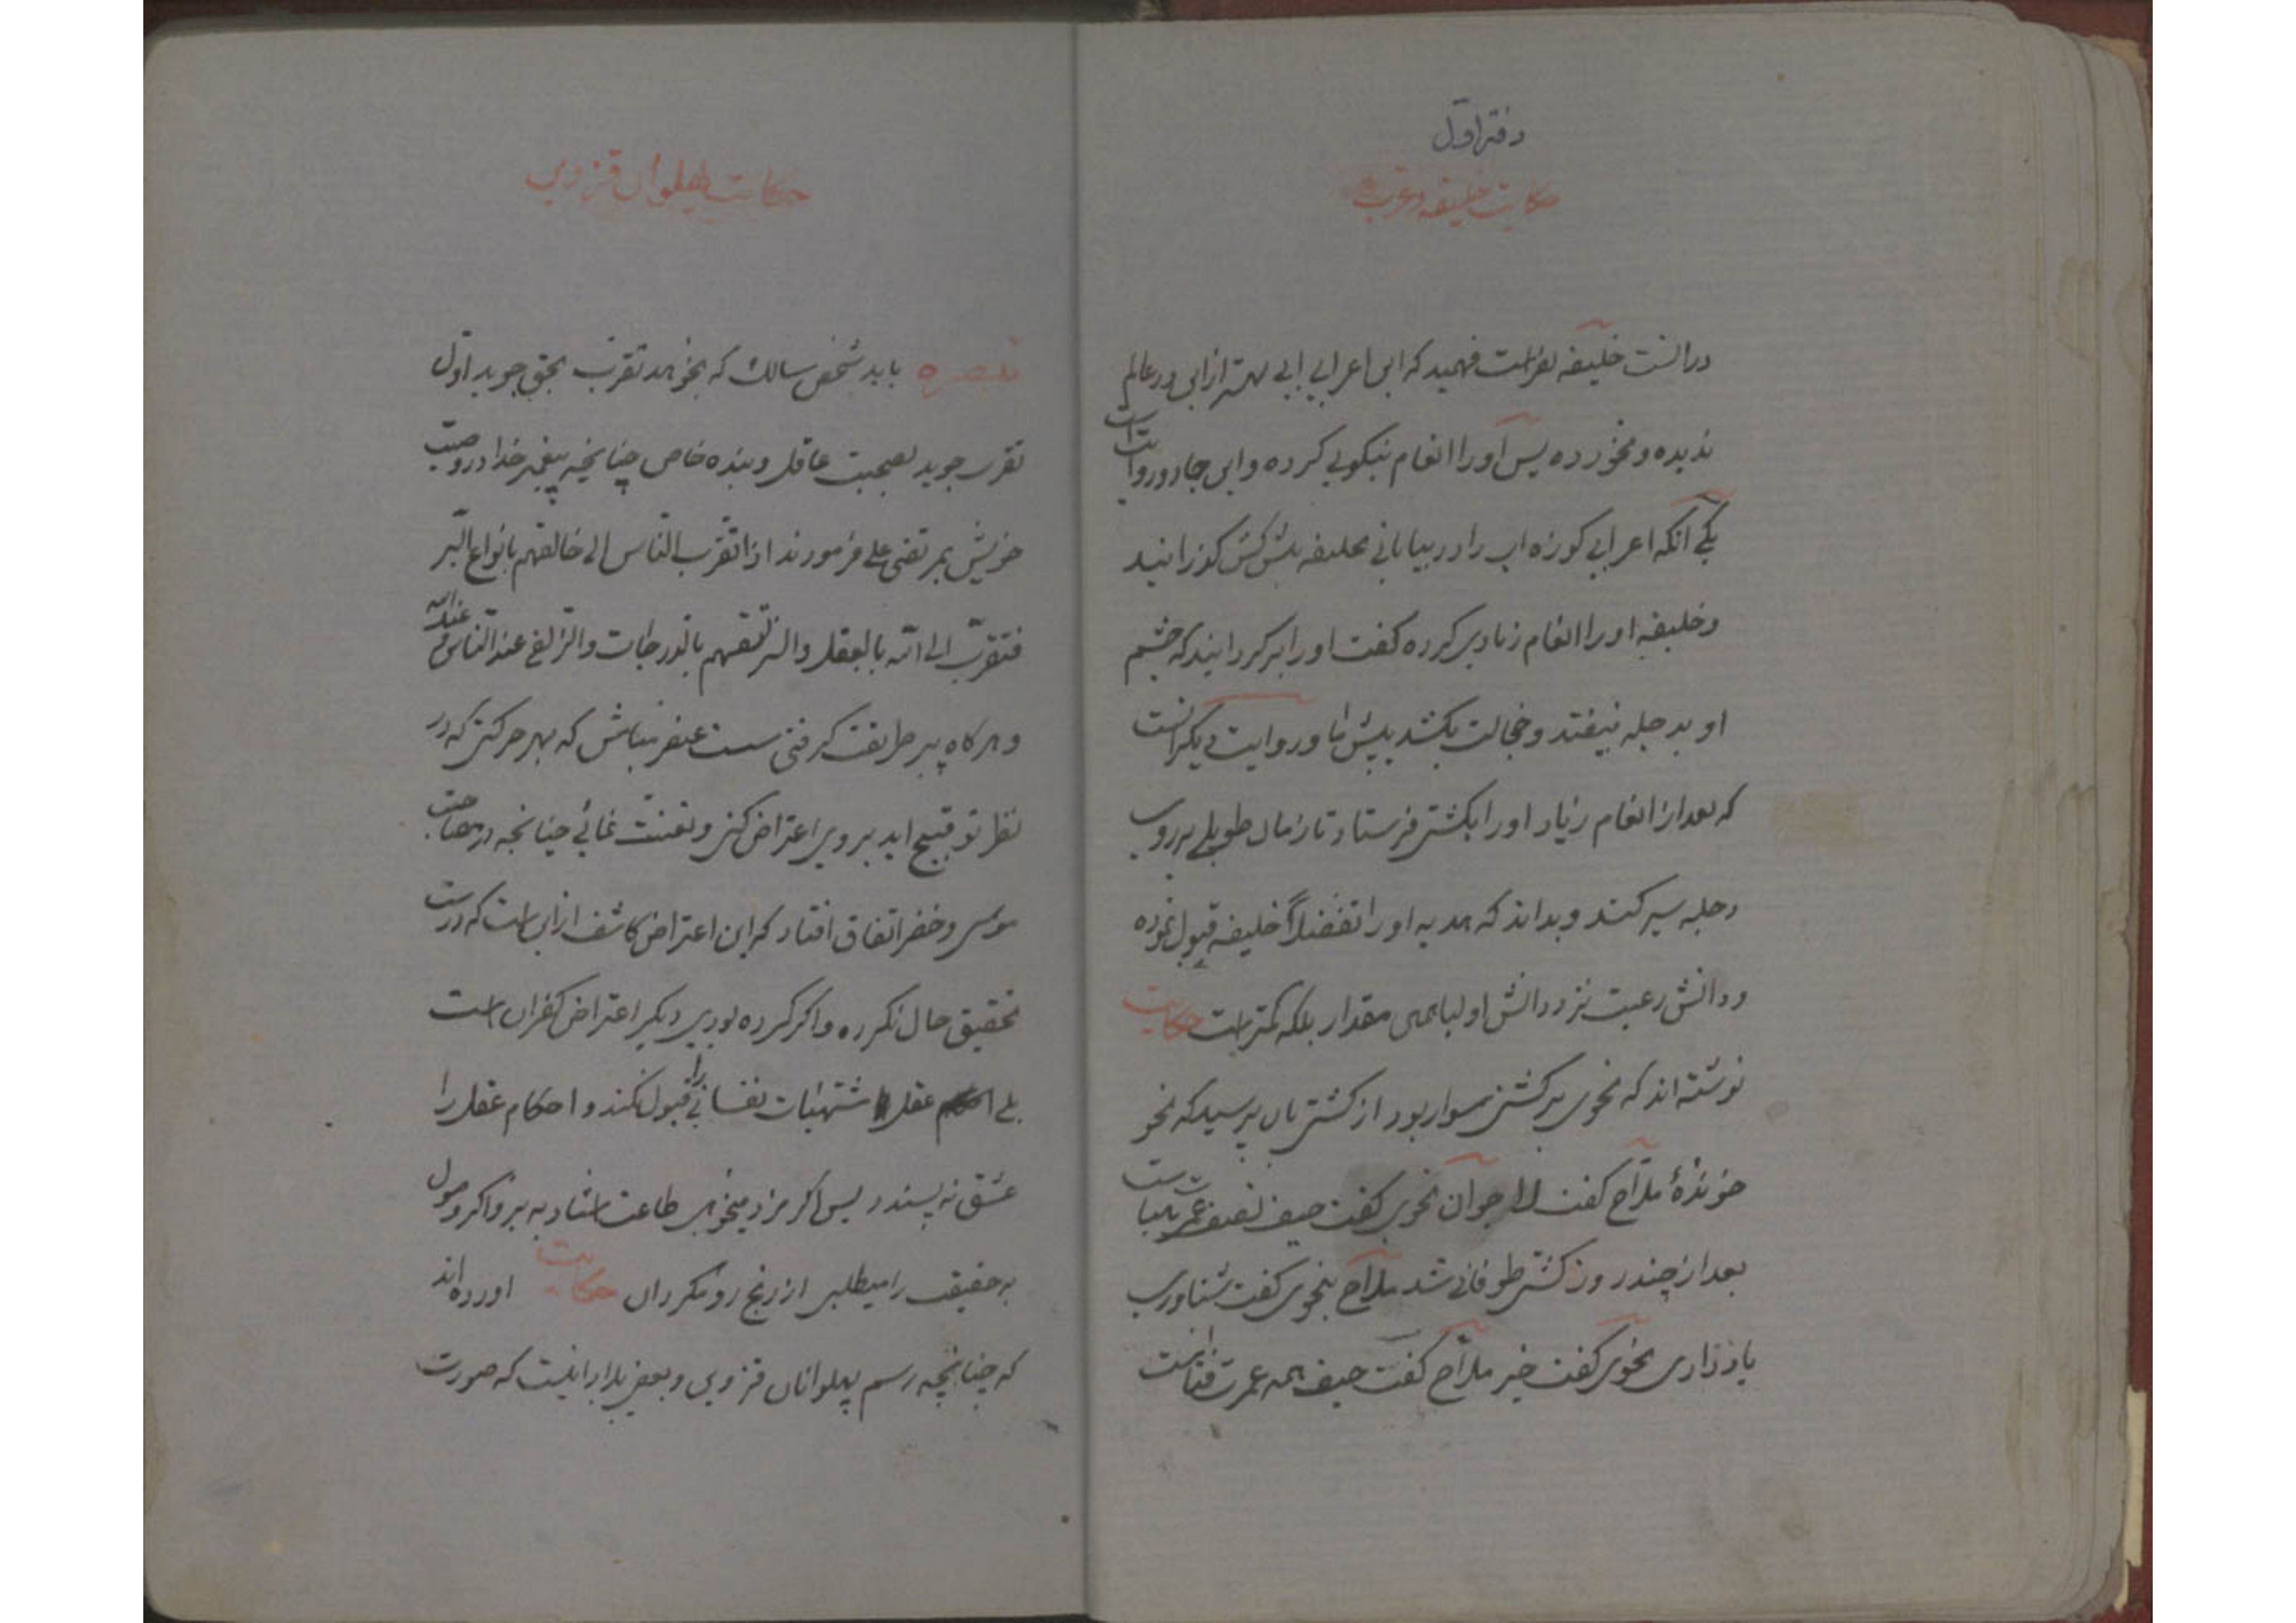 دفتر اول
حکایت خلیفه و عرب
در انست خلیفه بفراست فهمید که این اعرابی ابی بهتر از این در عالم
ندیده و نخورده پس او را انعام نیکویی کرده و این جا دو روایت است
یکی آنکه اعرابی کوزه اب را در بیابانی بخلیفه پیش کش کوزرانید
و خلیفه او را انعام زیادی کرده کفت او را بر کردانید که چشم
او بدجله نیفتد و خجالت بکشد پیش ما و روایت دیکر انست
که بعد از انعام زیاد او را بکشتی فرستاد تا زمان طویلی بر روی
دجله سیر کند و بداند که هدیه او را تفضلاً خلیفه قبول نموده
و دانش رعیت نزد دانش اولیا همین مقدار بلکه کمتر است حکایت
نوشته اند که نحوی بر کشتی سوار بود از کشتی بان پرسید که نحو
خوندۀ ملاح کفت لا جوان نحوی کفت حیف نصف عمرت
بعد از چند روز کشتی طوفانی شد ملاح بنحوی کفت شناوری
یاد داری نحوی کفت خیر ملاح کفت حیف همه عمرت فنا است
حکایت پهلوان قزوینی
تبصره باید شخص سالک که بخواهد تقرب بحق جوید اول
تقرب جوید بصحبت عاقل و بنده خاص چنانچه پیغمبر خدا در وصیت
خویش بمرتضی علی فرمودند اذا تقرب الناس الی خالقهم بانواع البر
فتقرب الی الله بالعقل والسر تسبقهم بالدرجات والزلفی عند الناس عند الله
و هر کاه پیر طریقت کرفتی سست عنصر مباش که بهر حرکتی که در
نظر تو قبیح اید بر وی اعتراض کنی و تعنت نمائی چنانچه در مصاحبت
موسی و خضر اتفاق افتاد که این اعتراض کاشف از این است که درست
تحقیق حال نکرده و اکر کرده بودی دیکر اعتراض کفران است
بلی عقل مشتهیات نفسانی را قبول نکند و احکام عقل را
عشق نه پسندد پس اکر مزد میخواهی طاعت استاد به بر و اکر وصول
بر حقیقت را میطلبی از رنج رو مکردان حکایت اورده اند
که چنانچه رسم پهلوانان قزوین و بعضی بلاد اینست که صورت